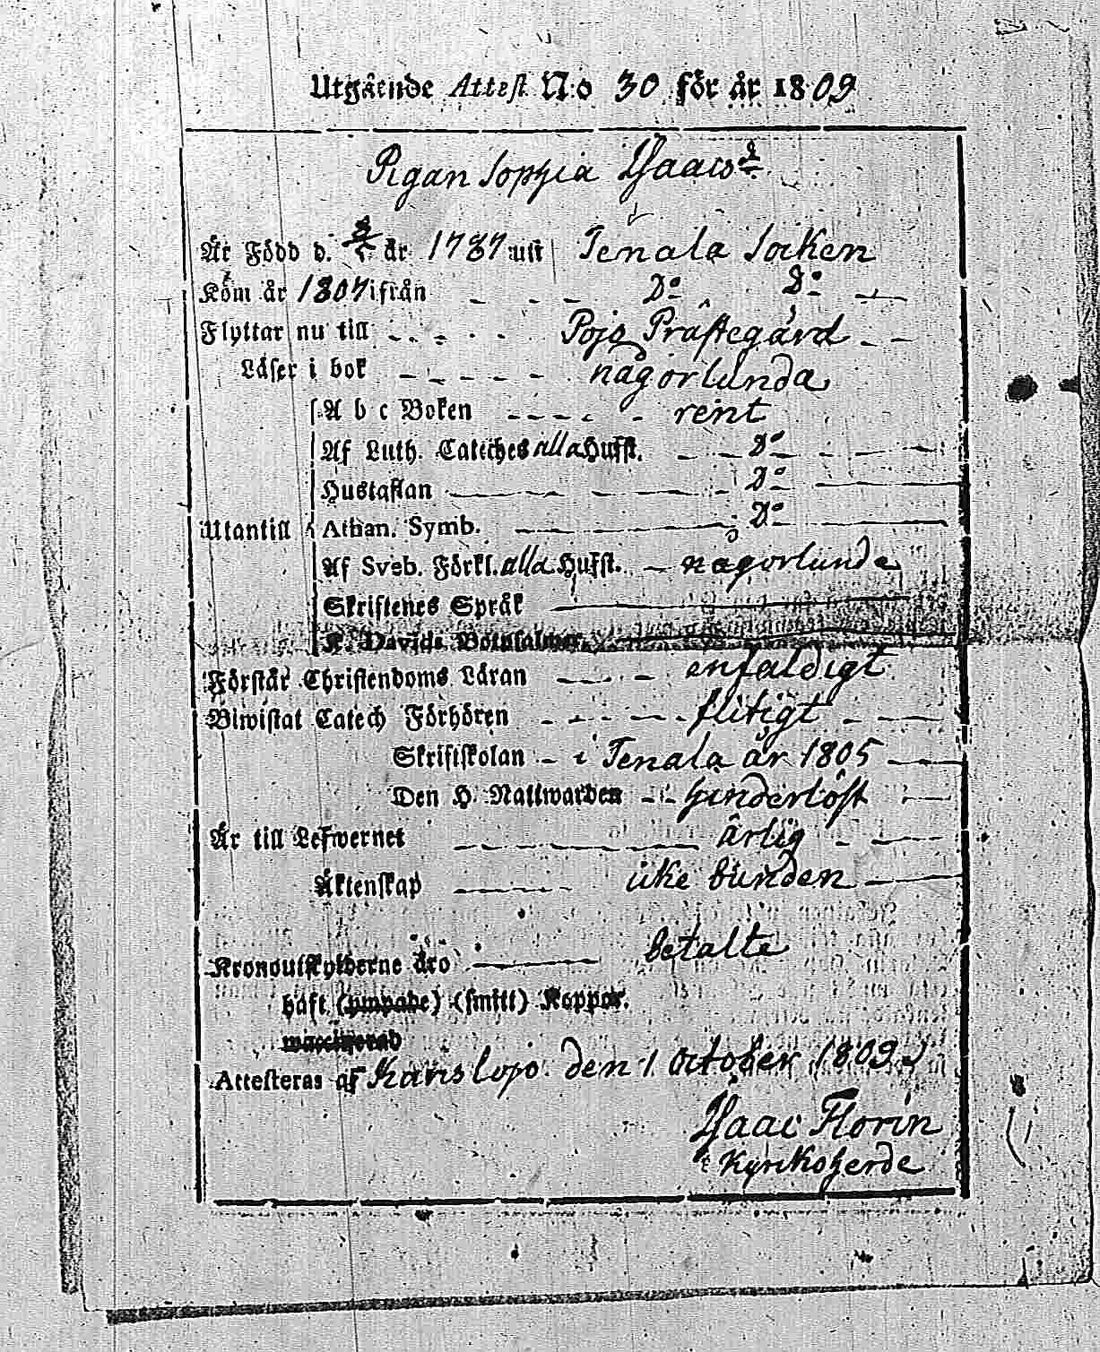 Utgående Attest N:o 30 för år 1809
Pigan Sophia Isaacsdr
Är Född d. 3/5 år 1787 uti Tenala Socken
Kom år 1807 ifrån - - - Do Do
Flyttar nu till - - - - Pojo Prästegård - -
Läser i bok - - - - - någorlunda
A b c Boken - - - - - rent
Af Luth. Cateches alla Hufst. - - Do
Hustaflan - - - Do
Utantill Athan. Symb. - - Do
Af Sveb. Förkl. alla Hufst. - någorlunda
Skriftenes Språk
K. Davids Botpsalmer
Förstår Christendoms Läran - - - enfaldigt
Biwistat Catech Förhören - - - - flitigt - -
Skriftskolan - i Tenala år 1805 - -
Den H. Nattwarden - - hinderlöst
Är till Lefwernet - - - - ärlig - -
Äktenskap - - - icke bunden
Kronoutskylderne äro - betalte
haft (ympade) (smitt) Koppor.
waccinerad
Attesteras af Karislojo den 1 October 1809
Isaac Florin
Kyrckoherde